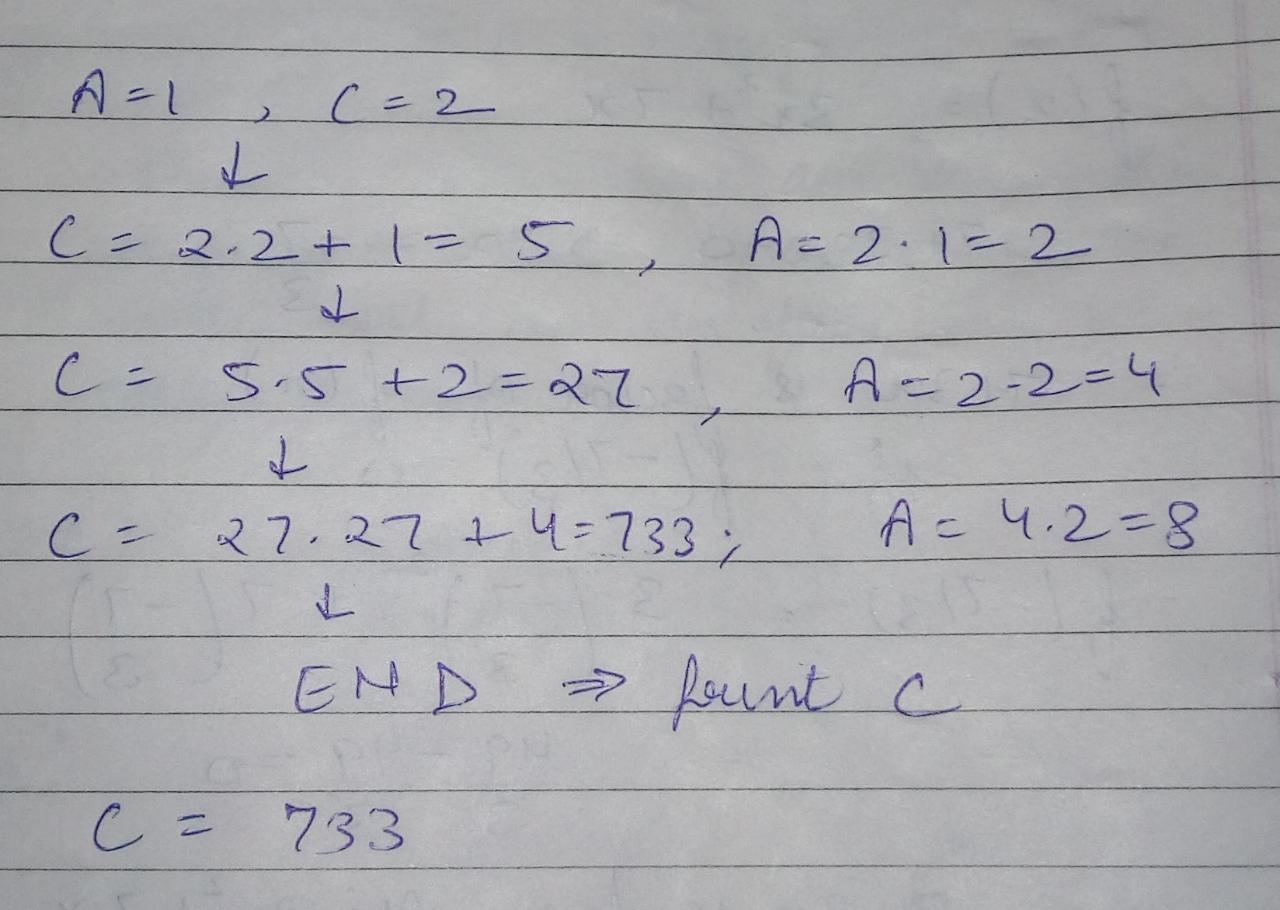 A = 1 , C = 2
↓
C = 2.2 + 1 = 5 , A = 2.1 = 2
↓
C = 5.5 + 2 = 27 , A = 2.2 = 4
↓
C = 27.27 + 4 = 733 ; A = 4.2 = 8
↓
END ⇒ print C
C = 733